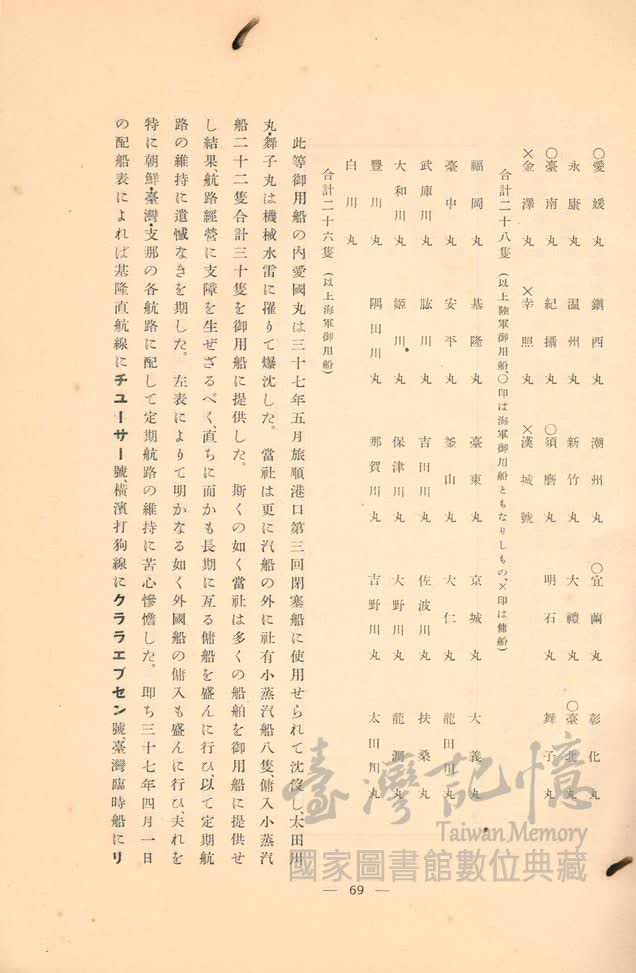 〇愛媛丸　鎭西丸　潮州丸　〇宜蘭丸　彰化丸
永康丸　温州丸　新竹丸　大禮丸　〇臺北丸
〇臺南丸　紀攝丸　〇須磨丸　明石丸　舞子丸
×金澤丸　×幸照丸　×漢城號
合計二十八隻（以上陸軍御用船、〇印は海軍御用船ともなりしもの、×印は傭船）
福岡丸　基隆丸　臺東丸　京城丸　大義丸
臺中丸　安平丸　釜山丸　大仁丸　龍田川丸
武庫川丸　肱川丸　吉田川丸　佐波川丸　扶桑丸
大和川丸　姬川丸　保津川丸　大野川丸　龍潤丸
豐川丸　隅田川丸　那賀川丸　吉野川丸　太田川丸
白川丸
合計二十六隻（以上海軍御用船）
此等御用船の內愛國丸は三十七年五月旅順港口第三回閉塞船に使用せられて沈沒し、太田川
丸、舞子丸は機械水雷に罹りて爆沈した。當社は更に汽船の外に社有小蒸汽船八隻、傭入小蒸汽
船二十二隻合計三十隻を御用船に提供した。斯くの如く當社は多くの船舶を御用船に提供せ
し結果、航路經營に支障を生ぜざるべく、直ちに而かも長期に亙る傭船を盛んに行ひ、以て定期航
路の維持に遺憾なきを期した。左表によりて明かなる如く外國船の傭入も盛んに行ひ、夫れを
特に朝鮮・臺灣・支那の各航路に配して定期航路の維持に苦心慘憺した。卽ち三十七年四月一日
の配船表によれば基隆直航線にチユーサー號、橫濱打狗線にクララエブセン號、臺灣臨時船にリ
— 69 —
臺灣記憶
Taiwan Memory
國家圖書館數位典藏